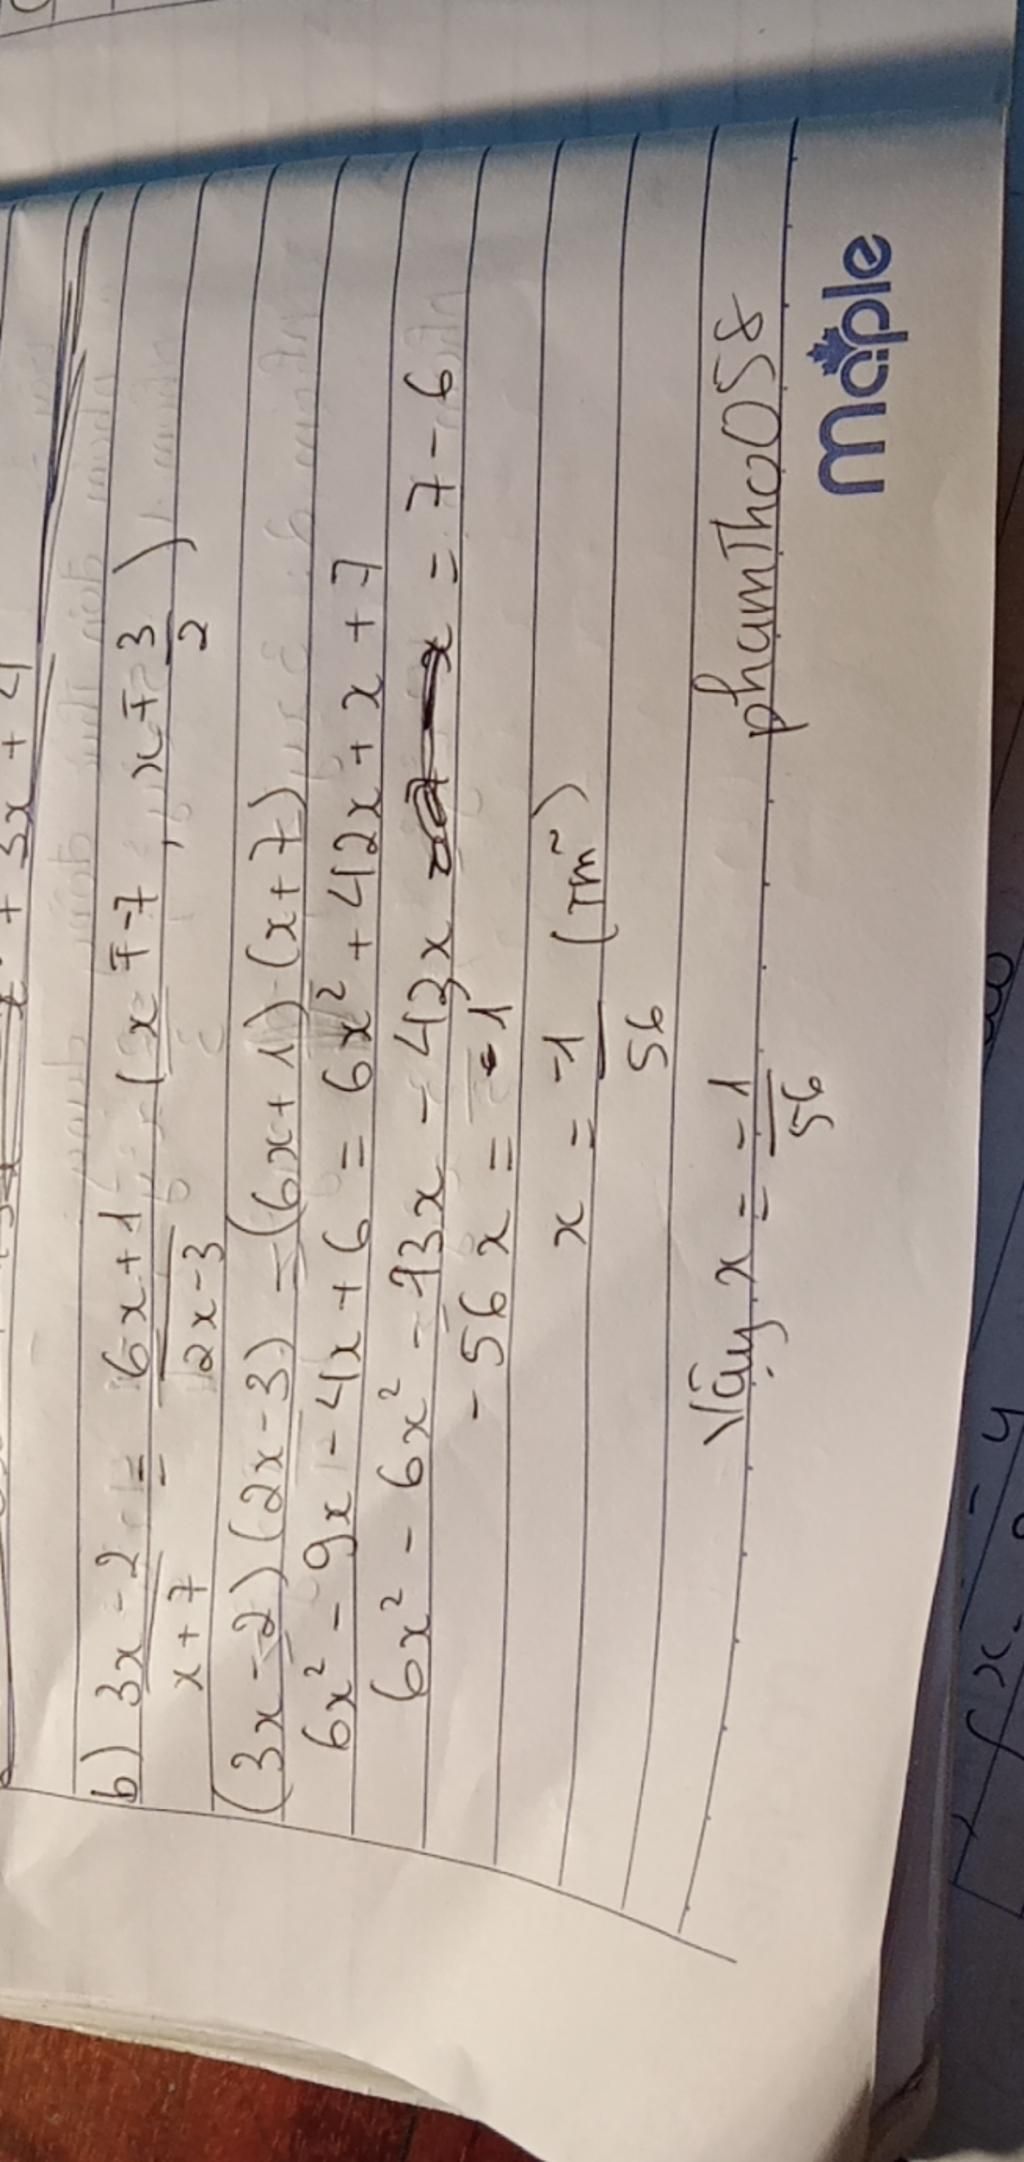 b) 3x - 2 = 6x + 1 (x ≠ -7, x ≠ 3)
x + 7 2x - 3 2
(3x - 2) (2x - 3) = (6x + 1) (x + 7)
6x² - 9x - 4x + 6 = 6x² + 42x + x + 7
6x² - 6x² - 13x - 43x = 7 - 6
- 56x = 1
x = -1 (Tm²)
56
Vậy x = -1
56
phamTho058
maple